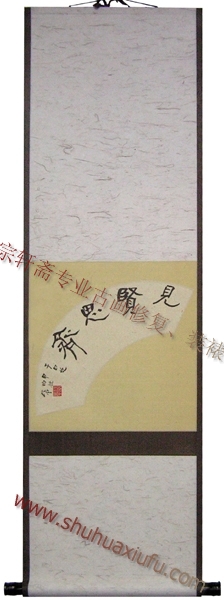 見賢思齊
宗轩斋专业古画修复、装裱
www.shuhuaxiufu.com